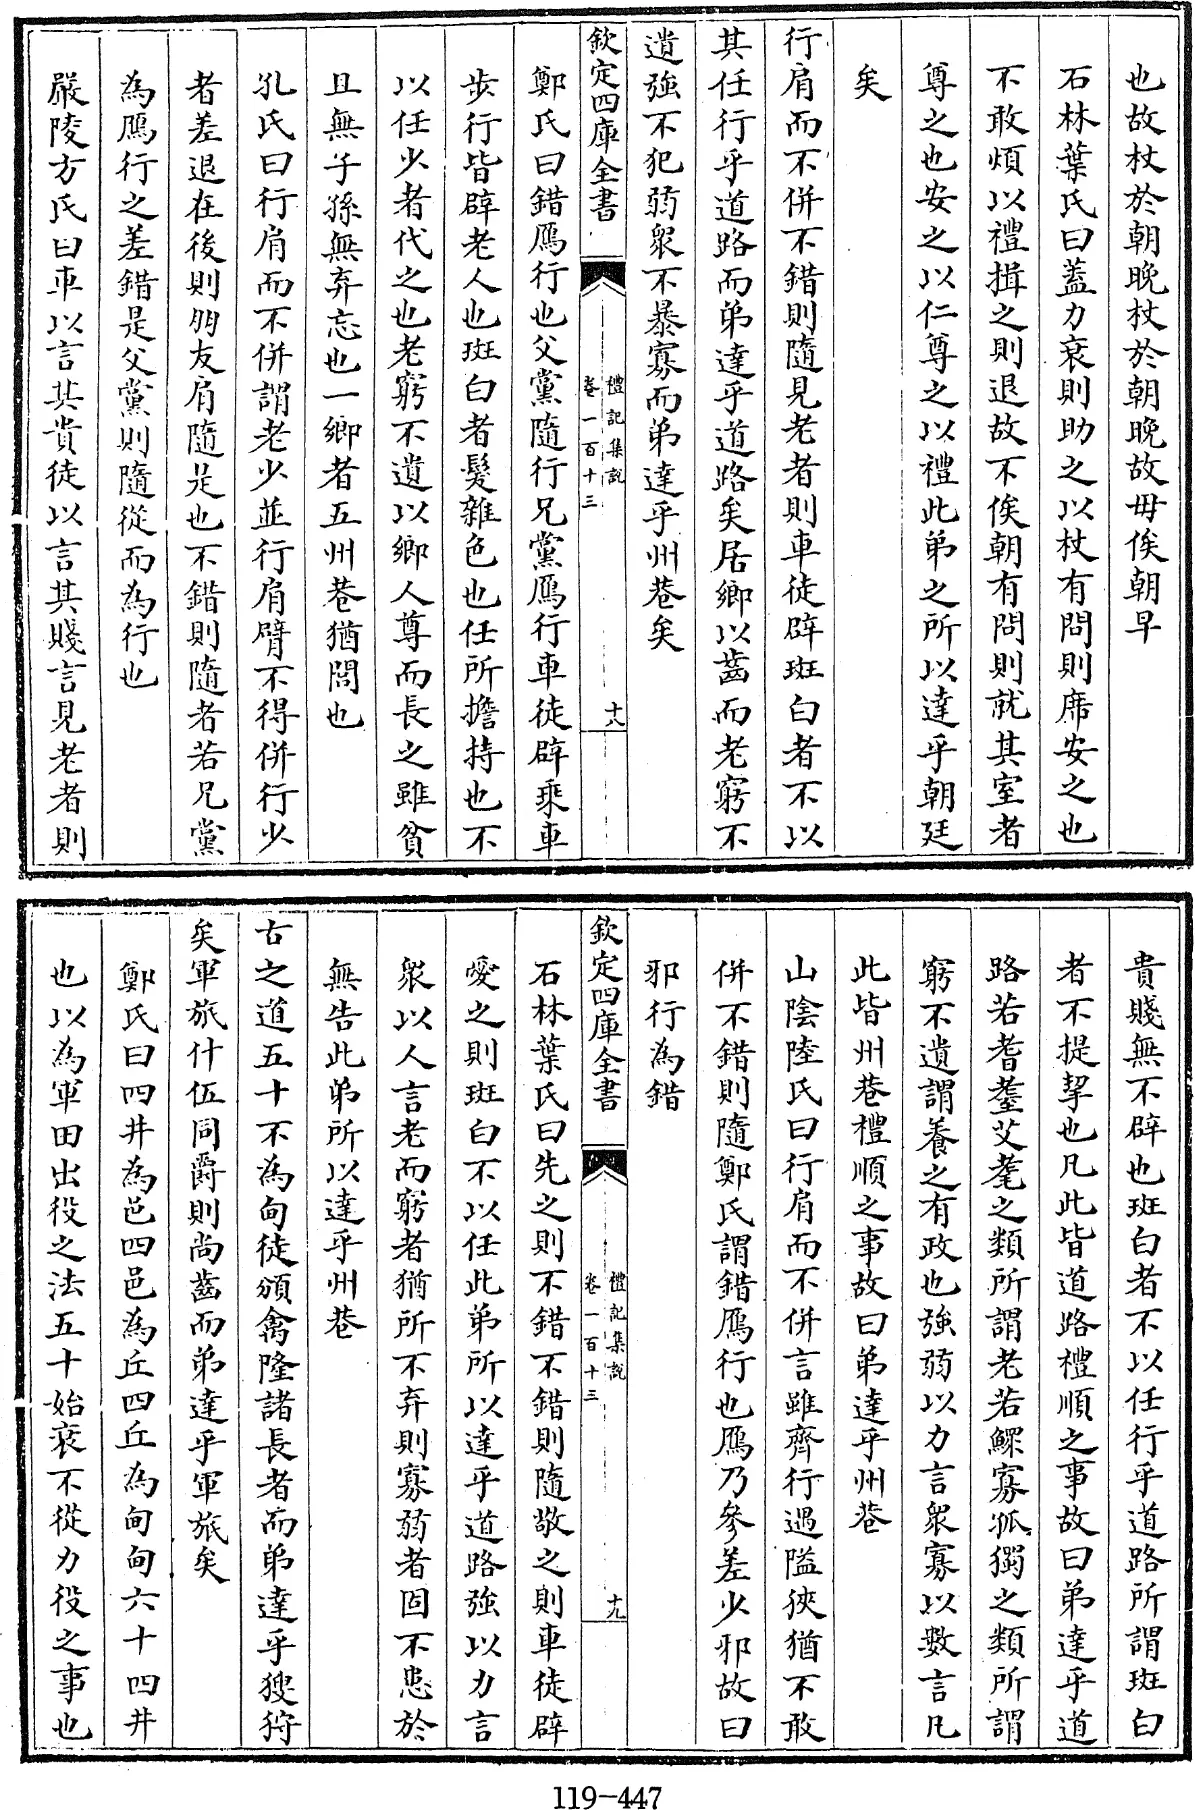 也故杖於朝晩杖於朝晩故毋俟朝早
石林葉氏曰蓋力衰則助之以杖有問則席安之也
不敢煩以禮揖之則退故不俟朝有問則就其室者
尊之也安之以仁尊之以禮此弟之所以達乎朝廷
矣
行肩而不併不錯則隨見老者則車徒辟斑白者不以
其任行乎道路而弟達乎道路矣居鄉以齒而老窮不
遺強不犯弱衆不暴寡而弟達乎州巷矣
欽定四庫全書
禮記集說
卷一百十三
十八
鄭氏曰錯鴈行也父黨隨行兄黨鴈行車徒辟乘車
步行皆辟老人也斑白者髮雜色也任所擔持也不
以任少者代之也老窮不遺以鄉人尊而長之雖貧
且無子孫無弃忘也一鄉者五州巷猶閭也
孔氏曰行肩而不併謂老少並行肩臂不得併行少
者差退在後則朋友肩隨是也不錯則隨者若兄黨
為鴈行之差錯是父黨則隨從而為行也
嚴陵方氏曰車以言其貴徒以言其賤言見老者則
貴賤無不辟也斑白者不以任行乎道路所謂斑白
者不提挈也凡此皆道路禮順之事故曰弟達乎道
路若耆耋艾耄之類所謂老若鰥寡孤獨之類所謂
窮不遺謂養之有政也強弱以力言衆寡以數言凡
此皆州巷禮順之事故曰弟達乎州巷
山陰陸氏曰行肩而不併言雖齊行遇隘狹猶不敢
併不錯則隨鄭氏謂錯鴈行也鴈乃參差少邪故曰
邪行為錯
欽定四庫全書
禮記集說
卷一百十三
十九
石林葉氏曰先之則不錯不錯則隨敬之則車徒辟
愛之則斑白不以任此弟所以達乎道路強以力言
衆以人言老而窮者猶所不弃則寡弱者固不患於
無告此弟所以達乎州巷
古之道五十不為甸徒頒禽隆諸長者而弟達乎獀狩
矣軍旅什伍同爵則尚齒而弟達乎軍旅矣
鄭氏曰四井為邑四邑為丘四丘為甸甸六十四井
也以為軍田出役之法五十始衰不從力役之事也
119-447